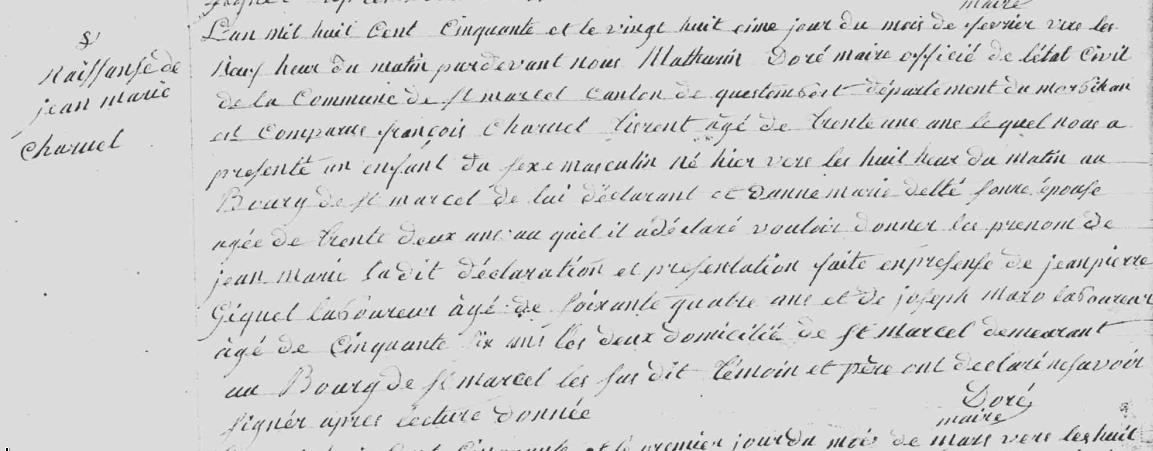 maire
§
Naissansé de
jean marie
Charuel
L'an mil huit Cent Cinquante et le vingt huit cime jour du mois de fevrier vere les
Neuf heur du matin pardevant nous Mathurin Doré maire officié de létat Civil
de la Commune de st marcel Canton de questembert département du morbihan
est Comparue françois Charuel âgé de trente une ans le quel nous a
presenté un enfant du sexe masculin né hier vers les huit heur du matin au
Bourg de st marcel de lui déclarant et d'anne marie sonne épouse
agée de trente deux ans au quel il a déclaré vouloir donner les prenom de
jean marie ladit déclaration et presentation faite en presense de jean pierre
Giquel laboureur âgé de soixante quatre ans et de joseph Maro laboureur
âgé de Cinquante six ans les deux domicilié de st marcel demeurant
au Bourg de st marcel les sus dit témoin et père ont declaré ne savoir
signér apres lécture donnée
Doré
maire
Cent Cinquante et le premier jour du mois de mars vers les huit